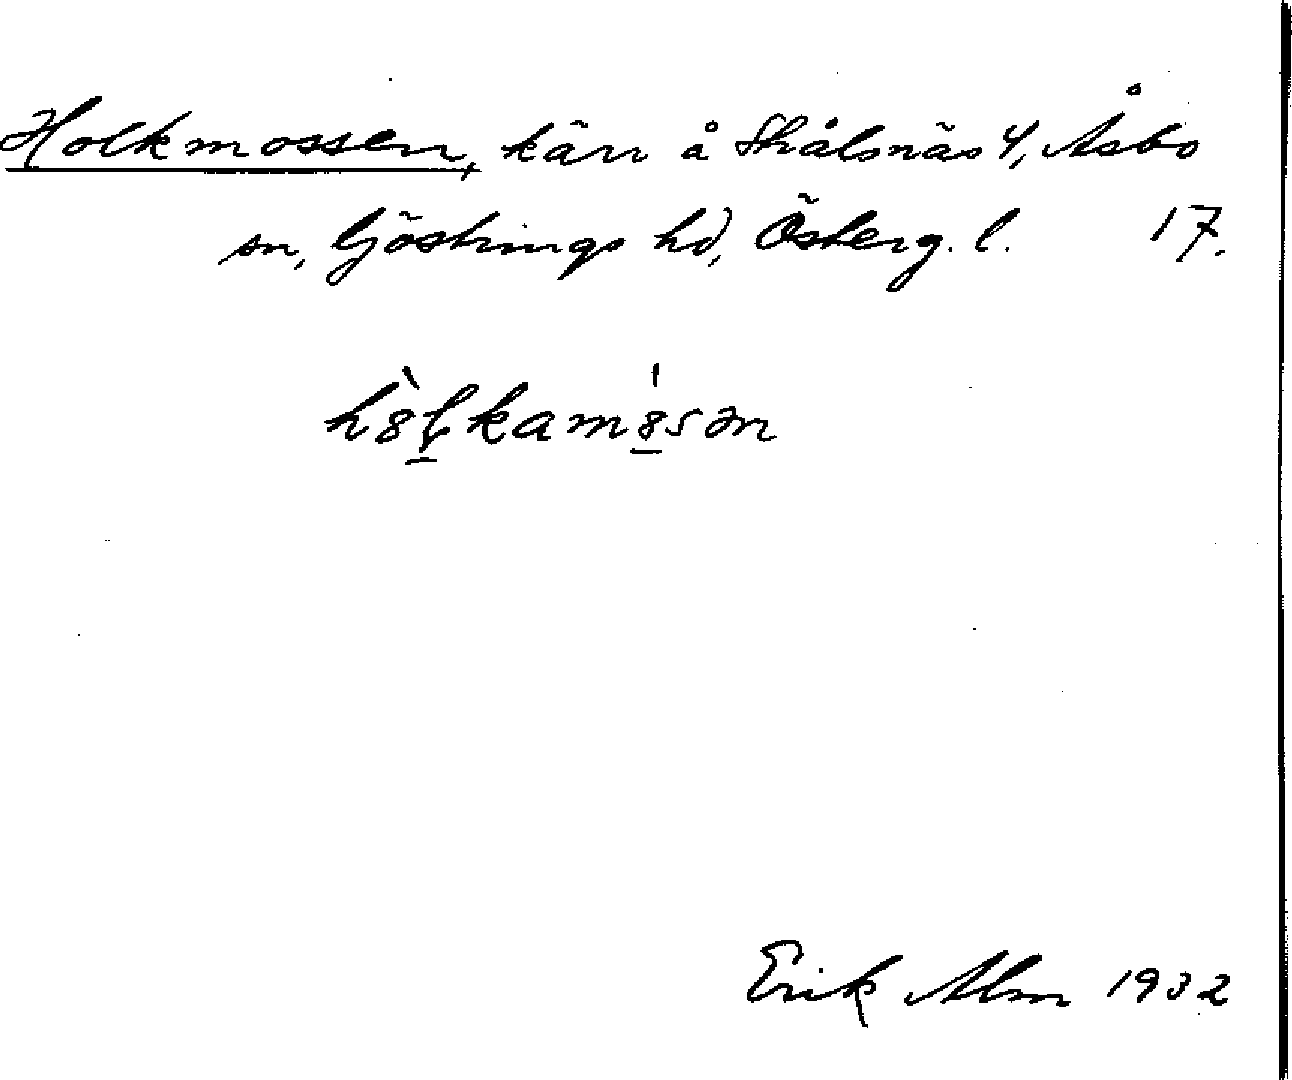 Holkmossen, kärr å Skålsnäs 4, Åsbo
sn, Göstrings hd, Österg. l. 17.
hȯ̀lkamȯsən
Erik Alm 1932